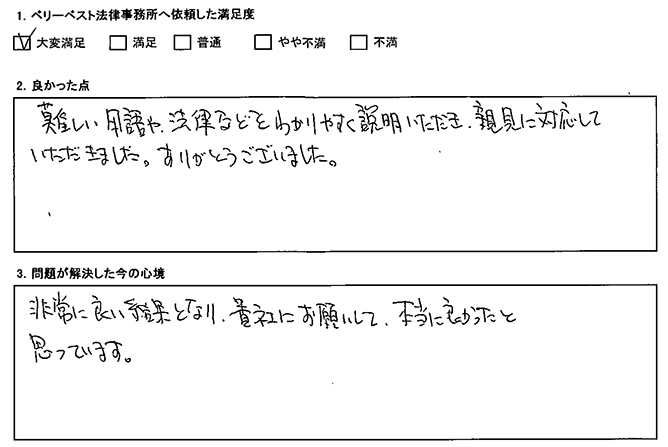 1. ベリーベスト法律事務所へ依頼した満足度
大変満足 満足 普通 やや不満 不満
2. 良かった点
難しい用語や、法律などをわかりやすく説明いただき、親見に対応して
いただきました。ありがとうございました。
3. 問題が解決した今の心境
非常に良い結果となり、貴社にお願いして、本当に良かったと
思っています。